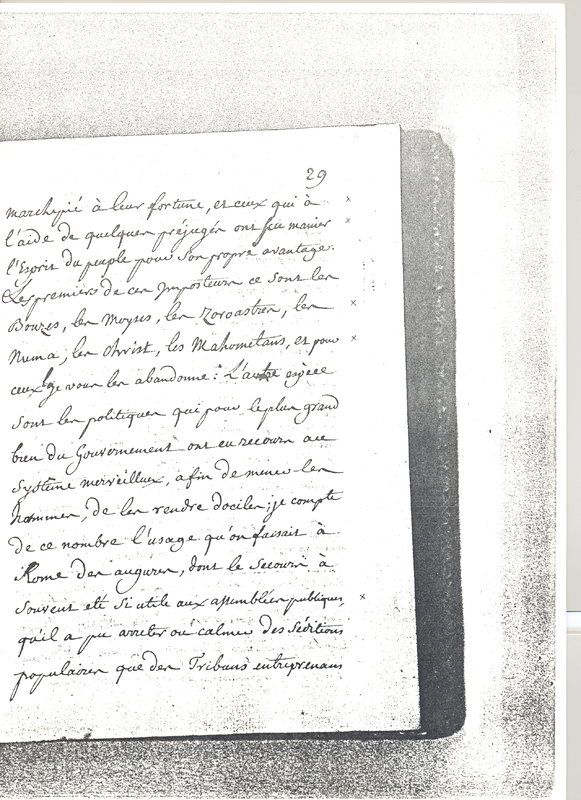 29
marchepié à leur fortune, et ceux qui à
l'aide de quelques préjugés ont sçu manier
l'Esprit du peuple pour son propre avantage.
Les premiers de ces Imposteurs ce sont les
Bonzes, les Moyses, les Zoroastres, les
Numa, les Christ, les Mahometans, et pour
ceux là je vous les abandonne: L'autre espèce
sont les politiques qui pour le plus grand
bien du Gouvernement ont eu recours au
systême merveilleux, afin de mener les
hommes, de les rendre dociles; je compte
de ce nombre l'usage qu'on faisait à
Rome des augures, dont le secours à
souvent eté si utile aux assemblées publiques,
qu'il a pu arreter ou calmer des séditions
populaires que des Tribuns entreprenans